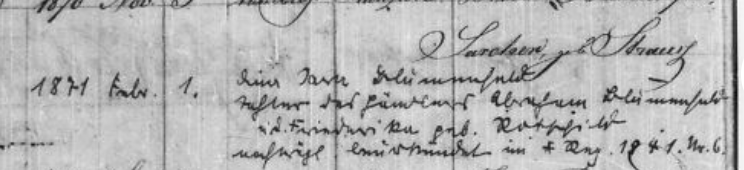 1870 Nov.
Sarchen, geb Strauss
1871 Febr. 1. Blumenfeld
Tochter des Händlers Abraham Blumenfeld
u.d. Friederika geb. Rothschild
nachträgl beurkundet im + Reg. 1941. Nr. 6.